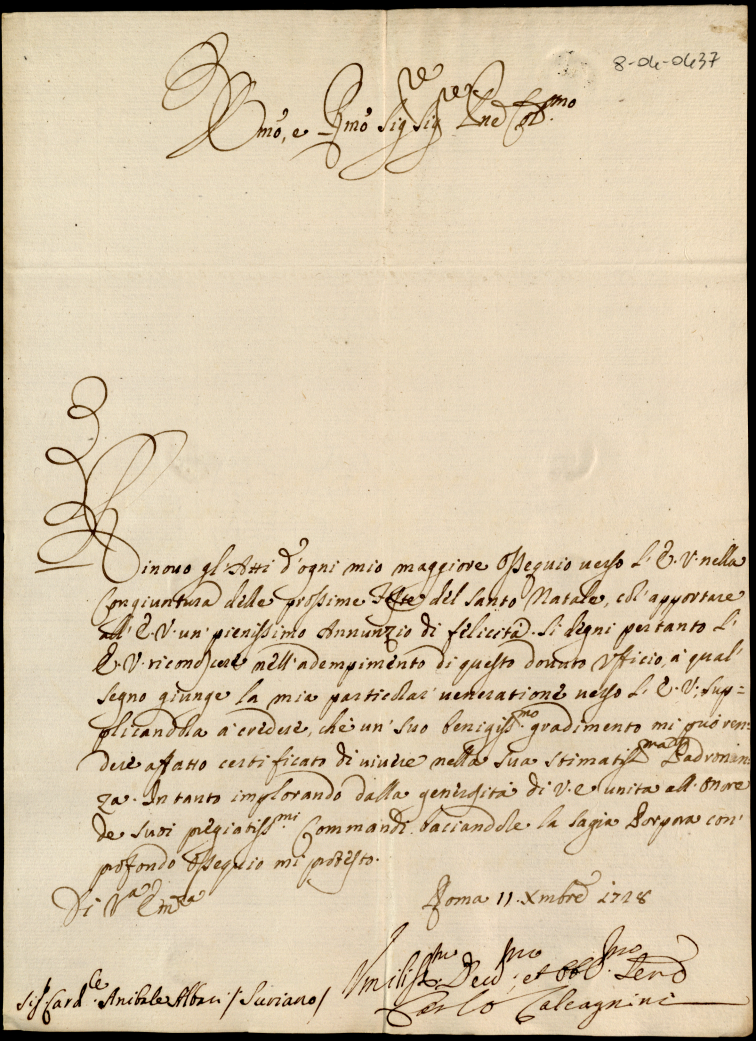 8-04-0437
Emo, e Rmo Sig.re Sig.re Pne Col.mo
Rinouo gl'Atti d'ogni mio maggiore Ossequio uerso l'E.V. nella
Congiuntura delle prossime Feste del Santo Natale, col'apportare
all'E.V. un pienissimo Annunzio di felicità. Si degni pertanto l'
E.V. riconoscere nell'adempimento di questo douuto Vfficio, à qual
segno giunge la mia particolar ueneratione uerso l'E.V., sup=
plicandola à credere, che un suo benigniss.mo gradimento mi può ren=
dere affatto certificato di uiuere nella sua stimatiss.ma Padronan=
za. In tanto implorando dalla generosità di V.E. unita all'Onore
de suoi pregiatiss.mi Commandi baciandole la sagra Porpora con
profondo Ossequio mi protesto.
Di V.ra Em.za
Roma 11 Xmbre 1728
Sig.r Card.le Anibale Albani /Suriano/
Vmiliss.mo Deu.mo, et obb.mo Seru.
Carlo Calcagnini